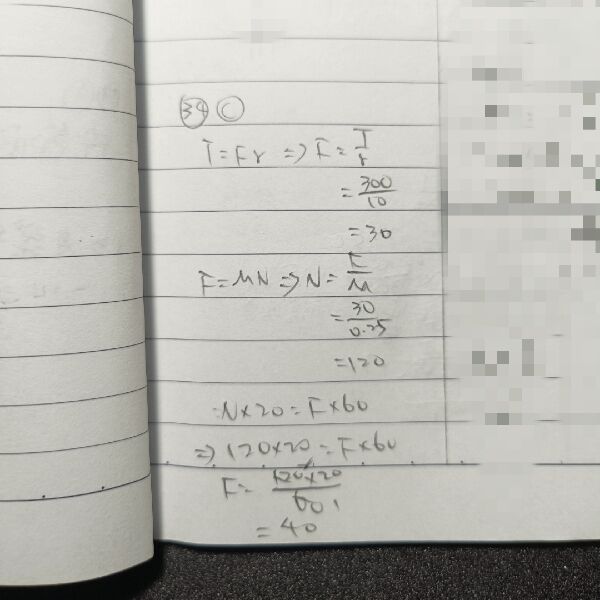 34 C
T = Fr => F = T/r
= 300/10
= 30
F = MN => N = F/M
= 30/0.25
= 120
N×20 = F×60
=> 120×20 = F×60
F = 120×20/60
= 40